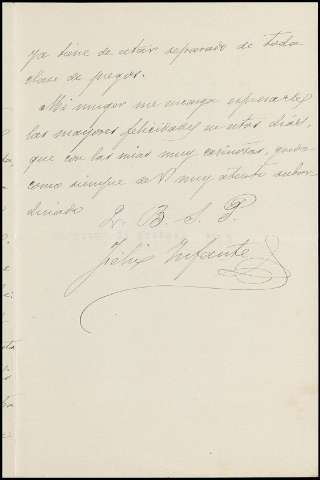 ya tiene de estar separado de toda
clase de pegas.
Mi mujer me encarga expresarles
las mayores felicidades en estos dias,
que con las mias muy cariñosas, queda
como siempre de V. muy atento subor-
dinado
L. B. S. P.
Felix Infante